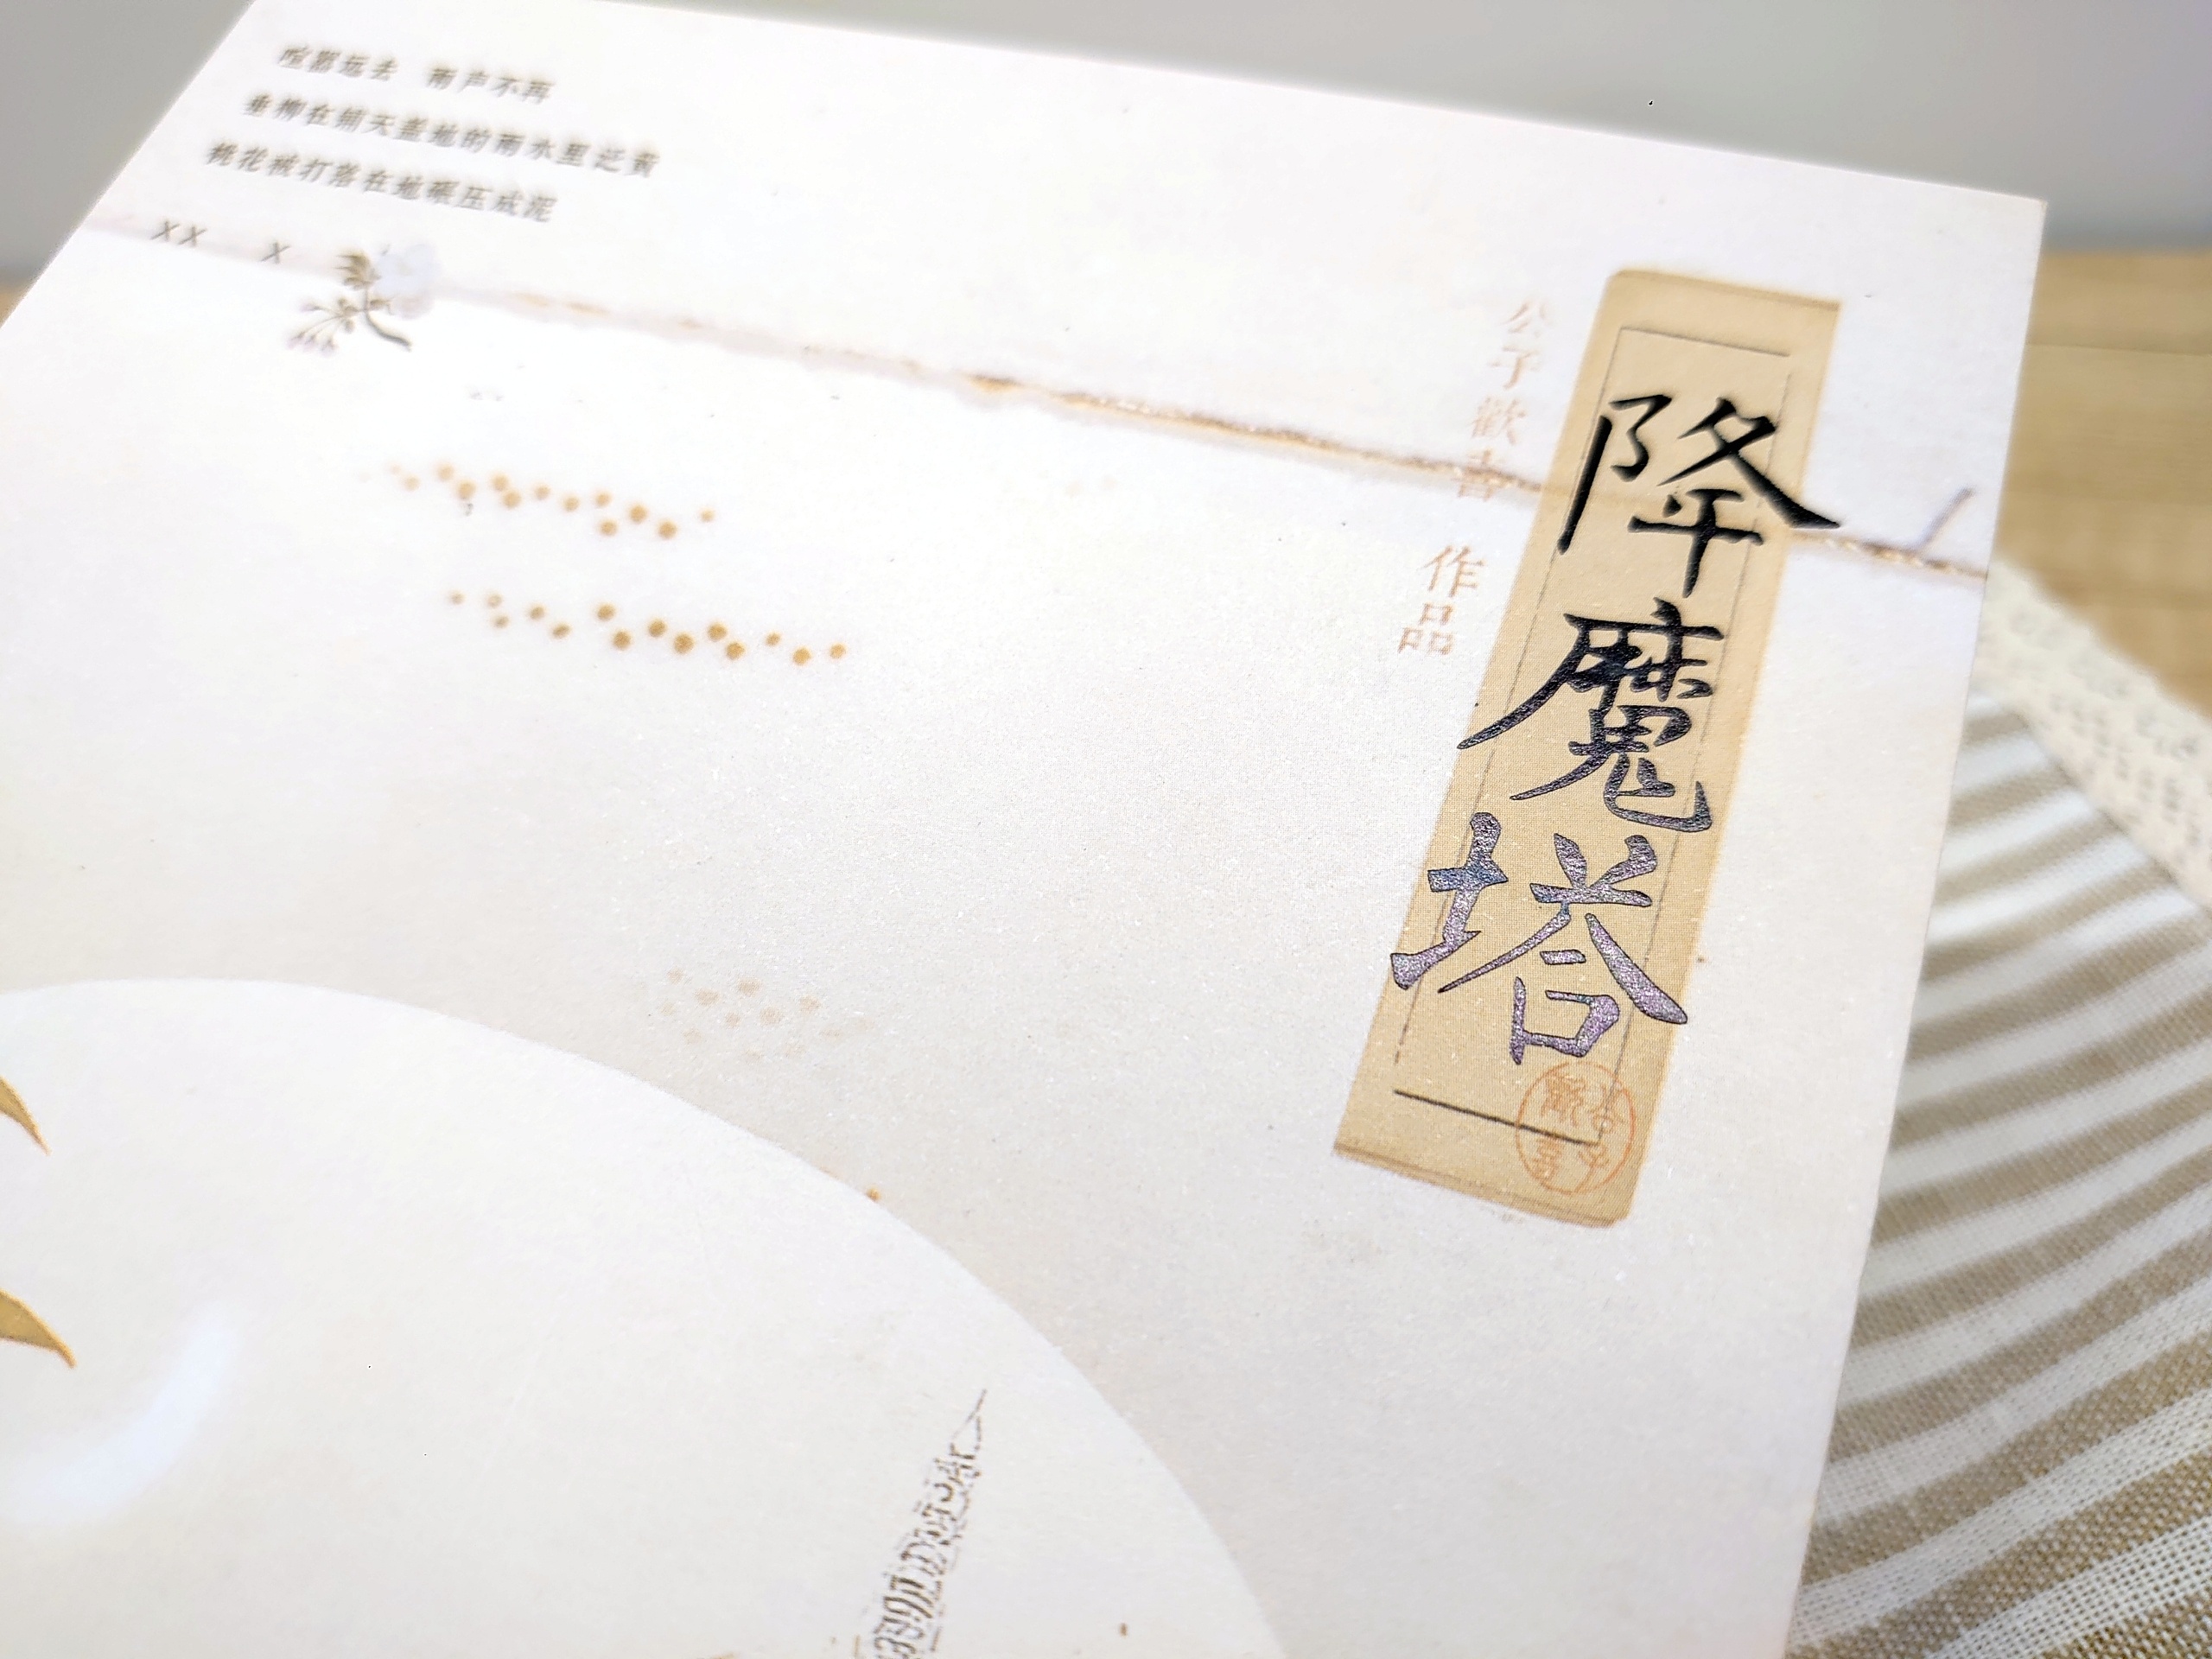 喧嚣远去 雨声不再
垂柳在铺天盖地的雨水里泛黄
桃花被打落在地碾压成泥
XX X
公子歡喜 作品
降魔塔
公子歡喜